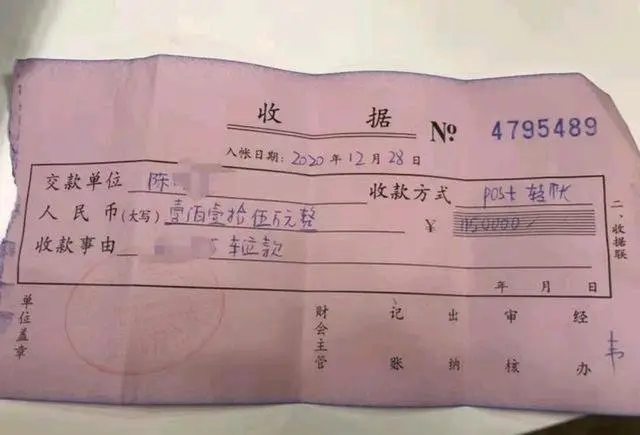 收 据 № 4795489
入帐日期: 2020 年 12 月 28 日
交款单位 陈 收款方式 post 转帐
人 民 币 (大写) 壹佰壹拾伍万元整 ¥ 1150000
收款事由 车位款
年 月 日
二、收据联
单位盖章
财会主管
记账
出纳
审核
经办